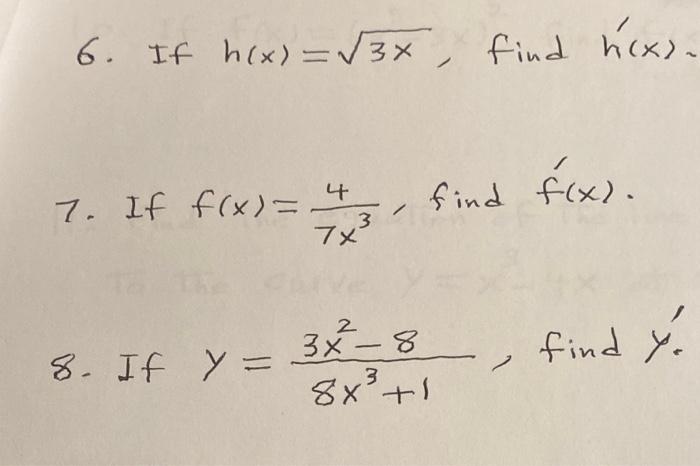 6. If h(x) = √3x, find h'(x).
7. If f(x) = 4/7x³, find f'(x).
8. If y = 3x² - 8 / 8x³ + 1, find y'.